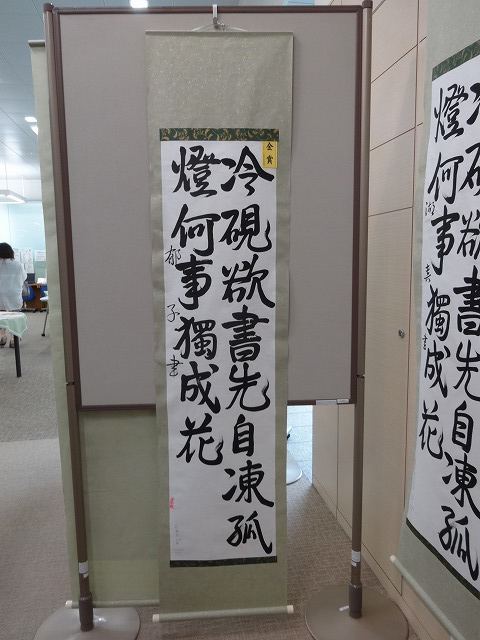 金賞
冷硯欲書先自凍孤
燈何事獨成花
郁子書
冷硯欲書先自凍孤
燈何事獨成花